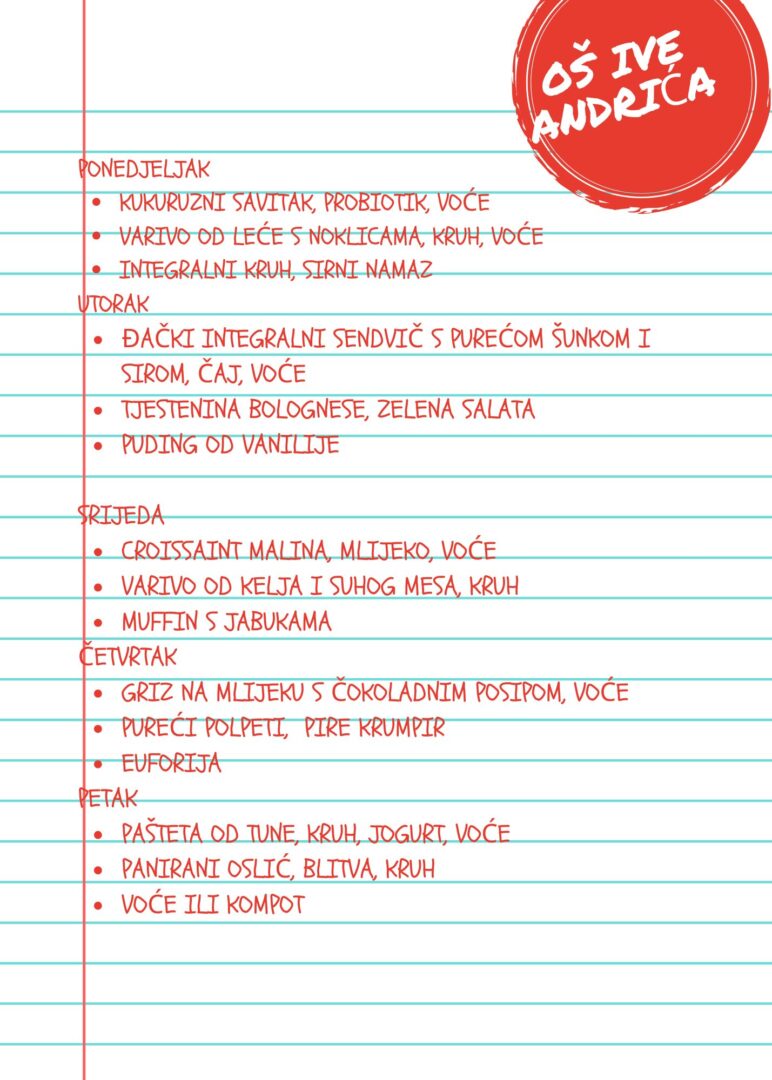 OŠ IVE
ANDRIĆA
PONEDJELJAK
• KUKURUZNI SAVITAK, PROBIOTIK, VOĆE
• VARIVO OD LEĆE S NOKLICAMA, KRUH, VOĆE
• INTEGRALNI KRUH, SIRNI NAMAZ
UTORAK
• ĐAČKI INTEGRALNI SENDVIČ S PUREĆOM ŠUNKOM I
SIROM, ČAJ, VOĆE
• TJESTENINA BOLOGNESE, ZELENA SALATA
• PUDING OD VANILIJE
SRIJEDA
• CROISSAINT MALINA, MLIJEKO, VOĆE
• VARIVO OD KELJA I SUHOG MESA, KRUH
• MUFFIN S JABUKAMA
ČETVRTAK
• GRIZ NA MLIJEKU S ČOKOLADNIM POSIPOM, VOĆE
• PUREĆI POLPETI, PIRE KRUMPIR
• EUFORIJA
PETAK
• PAŠTETA OD TUNE, KRUH, JOGURT, VOĆE
• PANIRANI OSLIĆ, BLITVA, KRUH
• VOĆE ILI KOMPOT